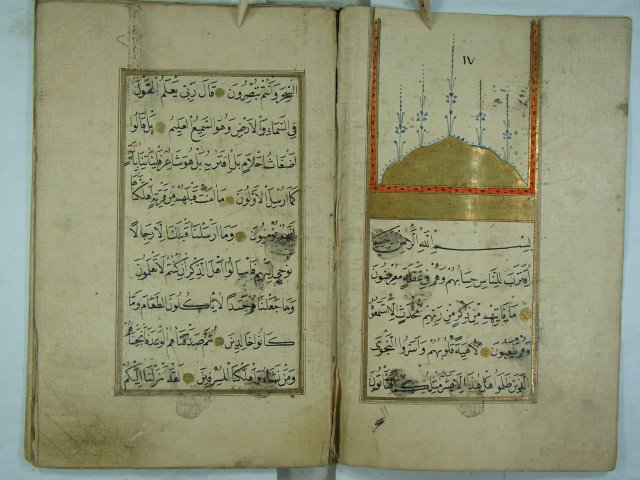 ١٧
بسم الله الرحمن الرحيم
اقترب للناس حسابهم وهم في غفلة معرضون
ما يأتيهم من ذكر من ربهم محدث الا استمعوه
وهم يلعبون لاهية قلوبهم واسروا النجوى
الذين ظلموا هل هذا الا بشر مثلكم افتأتون
السحر وانتم تبصرون قال ربي يعلم القول
في السماء والارض وهو السميع العليم بل قالوا
اضغاث احلام بل افتريه بل هو شاعر فليأتنا باية
كما ارسل الاولون ما امنت قبلهم من قرية اهلكناها
افهم يؤمنون وما ارسلنا قبلك الا رجالا
نوحي اليهم فاسألوا اهل الذكر ان كنتم لا تعلمون
وما جعلناهم جسدا لا يأكلون الطعام وما
كانوا خالدين ثم صدقناهم الوعد فانجيناهم
ومن نشاء واهلكنا المسرفين لقد انزلنا اليكم